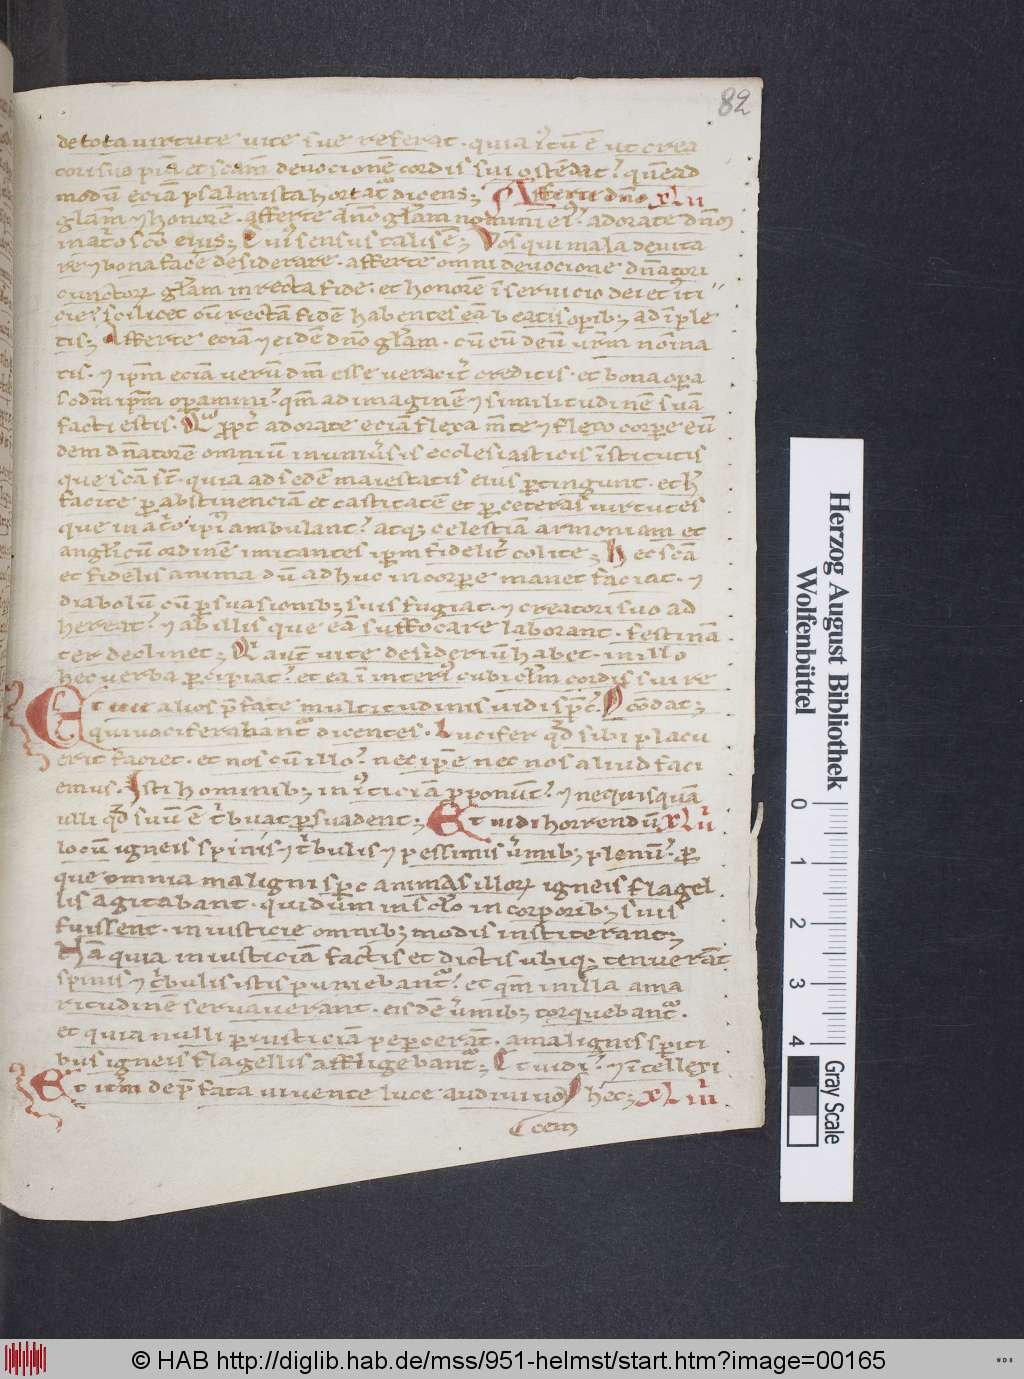 82
de tota virtute vite sue referat. quia iꝰtū ē ut crea
tori suo piā et scām devocionē cordis sui ostēdat. quēad
modū eciā psalmista hortatᷣ dicens; Afferte dn̄o xlii
gl̄am ⁊ honorē. afferte dn̄o gl̄am nomini eiꝰ. adorate dn̄m
in at̓o scō eius; Cuiꝰ sensus talis ē; Vos qui mala devita
re ⁊ bona facē desiderare. afferte omni devocione dn̄atori
cunctorꝝ gl̄am in recta fide. et honorē ī servicio dei et iꝰti
cie. scilicet cū rectā fidē habentes eā beatis op̄ibꝫ adīple
tis; Afferte eciā ⁊ eidē dn̄o gl̄am. cū eū deū vr̄m noīna
tis. ⁊ ip̄m eciā verū dn̄m esse veracit̓ creditis. et bona op̄a
ip̄m operamini. qm̄ ad imaginē ⁊ similitudinē suā
facti estis. adorate eciā flexa m̄te ⁊ flexo corꝑe eū
dem dn̄atorē omniū in univ̓sis ecclesiasticis īstitutis
que scā st̄. quia ad sedē maiestatis eius ꝑtingunt. et h̓
facite ꝑ abstinenciā et castitatē et ꝑ ceteras virtutes
que in at̓o ip̄i ambulant. atqꝫ celestiā armoniam et
angl̓icū ordinē imitantes ip̄m fidelit̓ colite; Hec scā
et fidelis anima dū adhuc in corꝑe manet faciat. ⁊
diabolū cū ꝑsuasionibꝫ suis fugiat. ⁊ creatori suo ad
hereat. ⁊ ab illis que eā suffocare laborant. festinā
ter declinet; Q aut̄ vite desideriū habet. in illo
hec verba ꝑcipiat. et ea ī interiꝰ cubicl̓m cordis sui re
Et vidi alios p̄fate multitudinis vidi sp̄c. Ocōdat;
qui vociferabantᷣ dicentes. Lucifer qd̓ sibi placu
erit faciet. et nos cū illo. nec ip̄e nec nos aliud faci
emus. Isti hominibꝫ iniꝰticiā ꝓponūt. ⁊ ne quisquā
ulli qd̓ suū ē t̓buat ꝑsuadent; Et vidi horrendū xlii
locū igneis spinis ⁊ t̓bulis ⁊ pessimis v̓mibꝫ plenū. ꝑ
que omnia maligni sp̄c animas illorꝝ igneis flagel
lis agitabant. qui dum in scl̓o in corporibꝫ suis
fuissent. iniusticie omnibꝫ modis institerant;
Nā quia iniusticiā factis et dictis ubiqꝫ tenuerāt
spinis ⁊ t̓bulis istis puniebantᷣ. et qm̄ in illa ama
ritudinē servaverant. eisdē v̓mibꝫ torquebantᷣ.
et quia nulli ꝑ iusticiā peꝑcerāt. a malignis spiriti
bus igneis flagellis affligebantᷣ; Et vidi. ⁊ ītellexi
Et it̓m de p̄fata vivente luce audivi vo hec; xliii
cem
Herzog August Bibliothek
Wolfenbüttel
0 1 2 3 4
Gray Scale
© HAB http://diglib.hab.de/mss/951-helmst/start.htm?image=00165